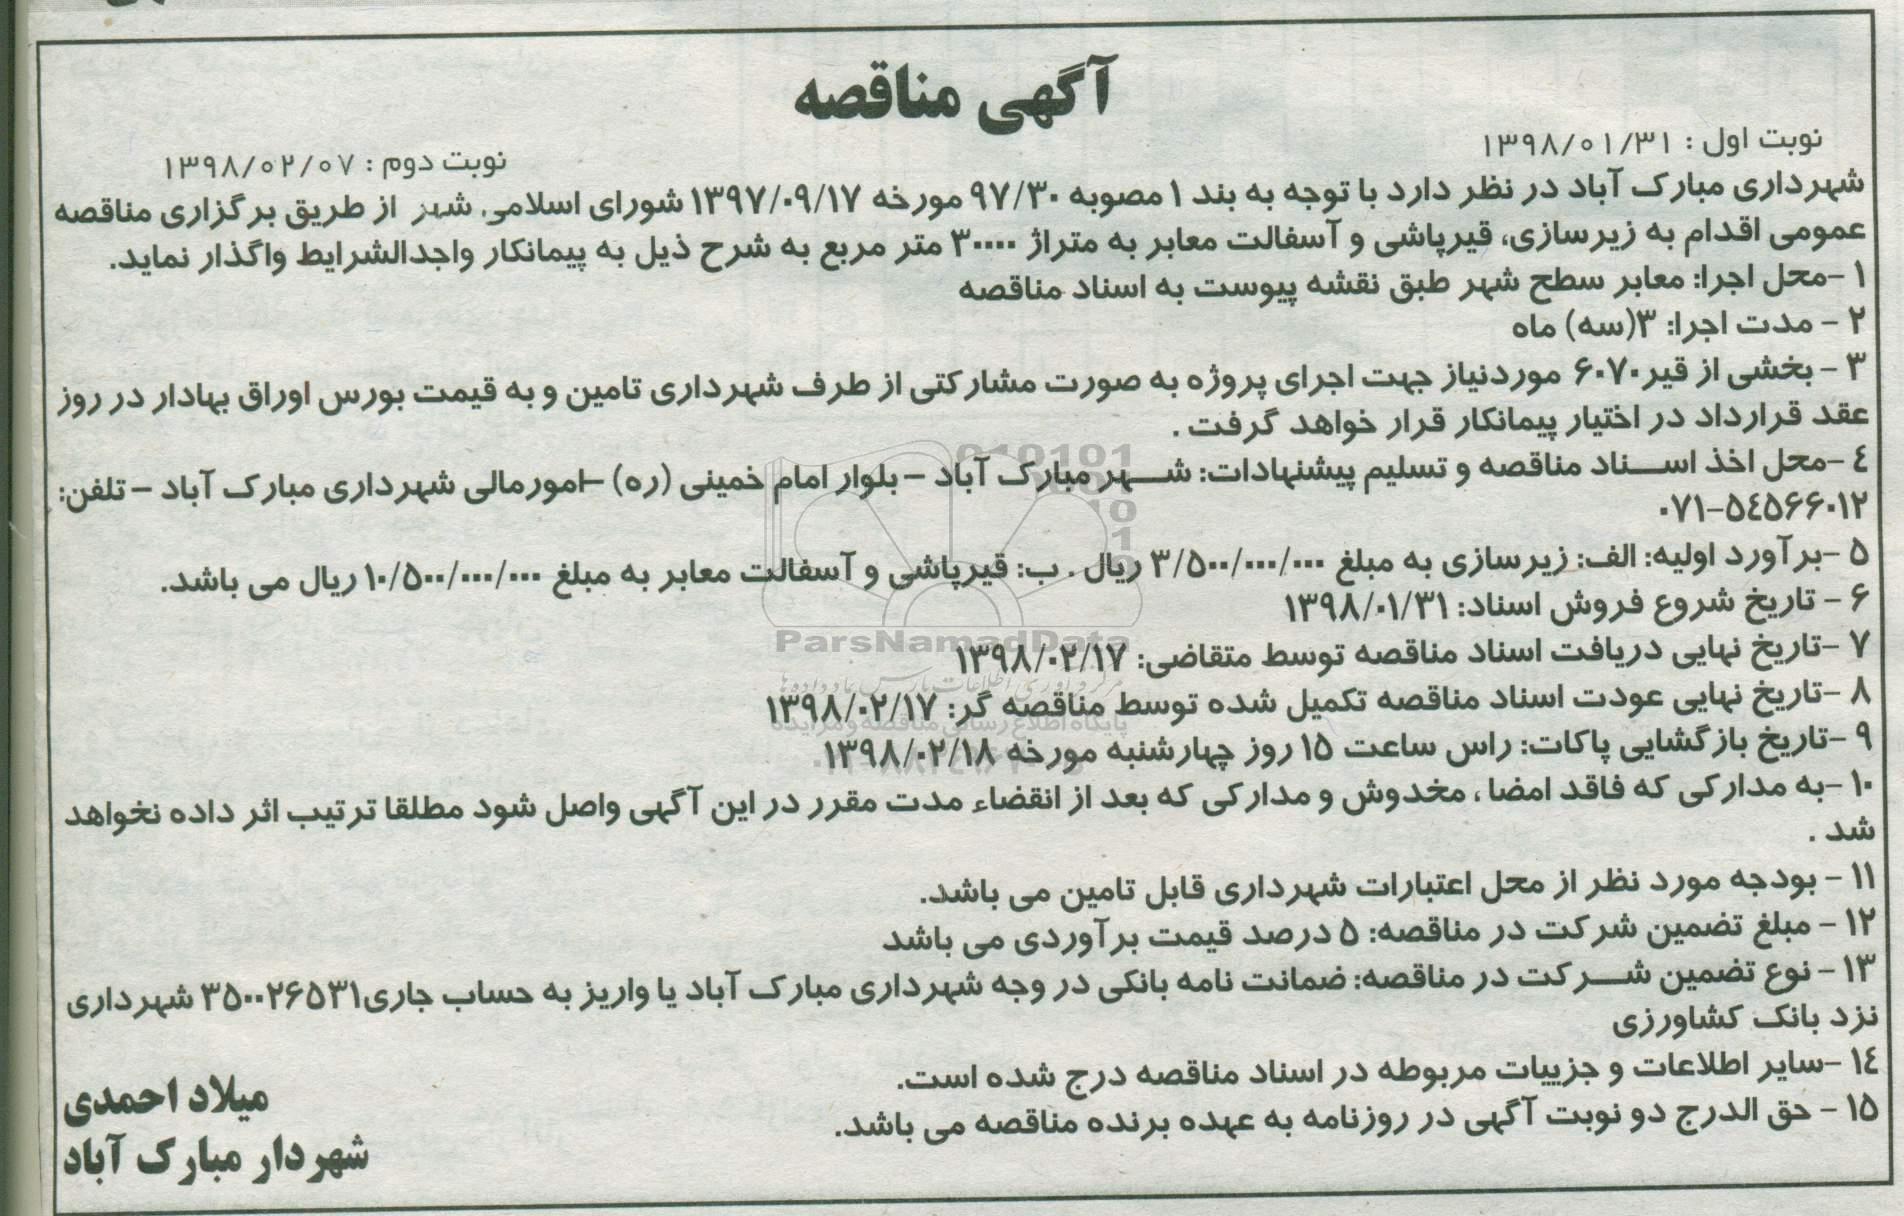 آگهی مناقصه
نوبت اول : ۱۳۹۸/۰۱/۳۱
نوبت دوم : ۱۳۹۸/۰۲/۰۷
شهرداری مبارک آباد در نظر دارد با توجه به بند ۱ مصوبه ۹۷/۳۰ مورخه ۱۳۹۷/۰۹/۱۷ شورای اسلامی شهر از طریق برگزاری مناقصه
عمومی اقدام به زیرسازی، قیرپاشی و آسفالت معابر به متراژ ۳۰۰۰۰ متر مربع به شرح ذیل به پیمانکار واجدالشرایط واگذار نماید.
۱ -محل اجرا: معابر سطح شهر طبق نقشه پیوست به اسناد مناقصه
۲ - مدت اجرا: ۳(سه) ماه
۳ - بخشی از قیر۶۰۷۰ موردنیاز جهت اجرای پروژه به صورت مشارکتی از طرف شهرداری تامین و به قیمت بورس اوراق بهادار در روز
عقد قرارداد در اختیار پیمانکار قرار خواهد گرفت .
۴ -محل اخذ اسـناد مناقصه و تسلیم پیشنهادات: شـهر مبارک آباد - بلوار امام خمینی (ره) -امورمالی شهرداری مبارک آباد - تلفن:
۰۷۱-۵۴۵۶۶۰۱۲
۵ -برآورد اولیه: الف: زیرسازی به مبلغ ۳/۵۰۰/۰۰۰/۰۰۰ ریال . ب: قیرپاشی و آسفالت معابر به مبلغ ۱۰/۵۰۰/۰۰۰/۰۰۰ ریال می باشد.
۶ - تاریخ شروع فروش اسناد: ۱۳۹۸/۰۱/۳۱
۷ -تاریخ نهایی دریافت اسناد مناقصه توسط متقاضی: ۱۳۹۸/۰۲/۱۷
۸ -تاریخ نهایی عودت اسناد مناقصه تکمیل شده توسط مناقصه گر: ۱۳۹۸/۰۲/۱۷
۹ -تاریخ بازگشایی پاکات: راس ساعت ۱۵ روز چهارشنبه مورخه ۱۳۹۸/۰۲/۱۸
۱۰ -به مدارکی که فاقد امضا ، مخدوش و مدارکی که بعد از انقضاء مدت مقرر در این آگهی واصل شود مطلقا ترتیب اثر داده نخواهد
شد .
۱۱ - بودجه مورد نظر از محل اعتبارات شهرداری قابل تامین می باشد.
۱۲ - مبلغ تضمین شرکت در مناقصه: ۵ درصد قیمت برآوردی می باشد
۱۳ - نوع تضمین شـرکت در مناقصه: ضمانت نامه بانکی در وجه شهرداری مبارک آباد یا واریز به حساب جاری۳۵۰۰۲۶۵۳۱ شهرداری
نزد بانک کشاورزی
۱۴ -سایر اطلاعات و جزییات مربوطه در اسناد مناقصه درج شده است.
۱۵ - حق الدرج دو نوبت آگهی در روزنامه به عهده برنده مناقصه می باشد.
میلاد احمدی
شهردار مبارک آباد
ParsNamadData
پایگاه اطلاع رسانی مناقصه و مزایده